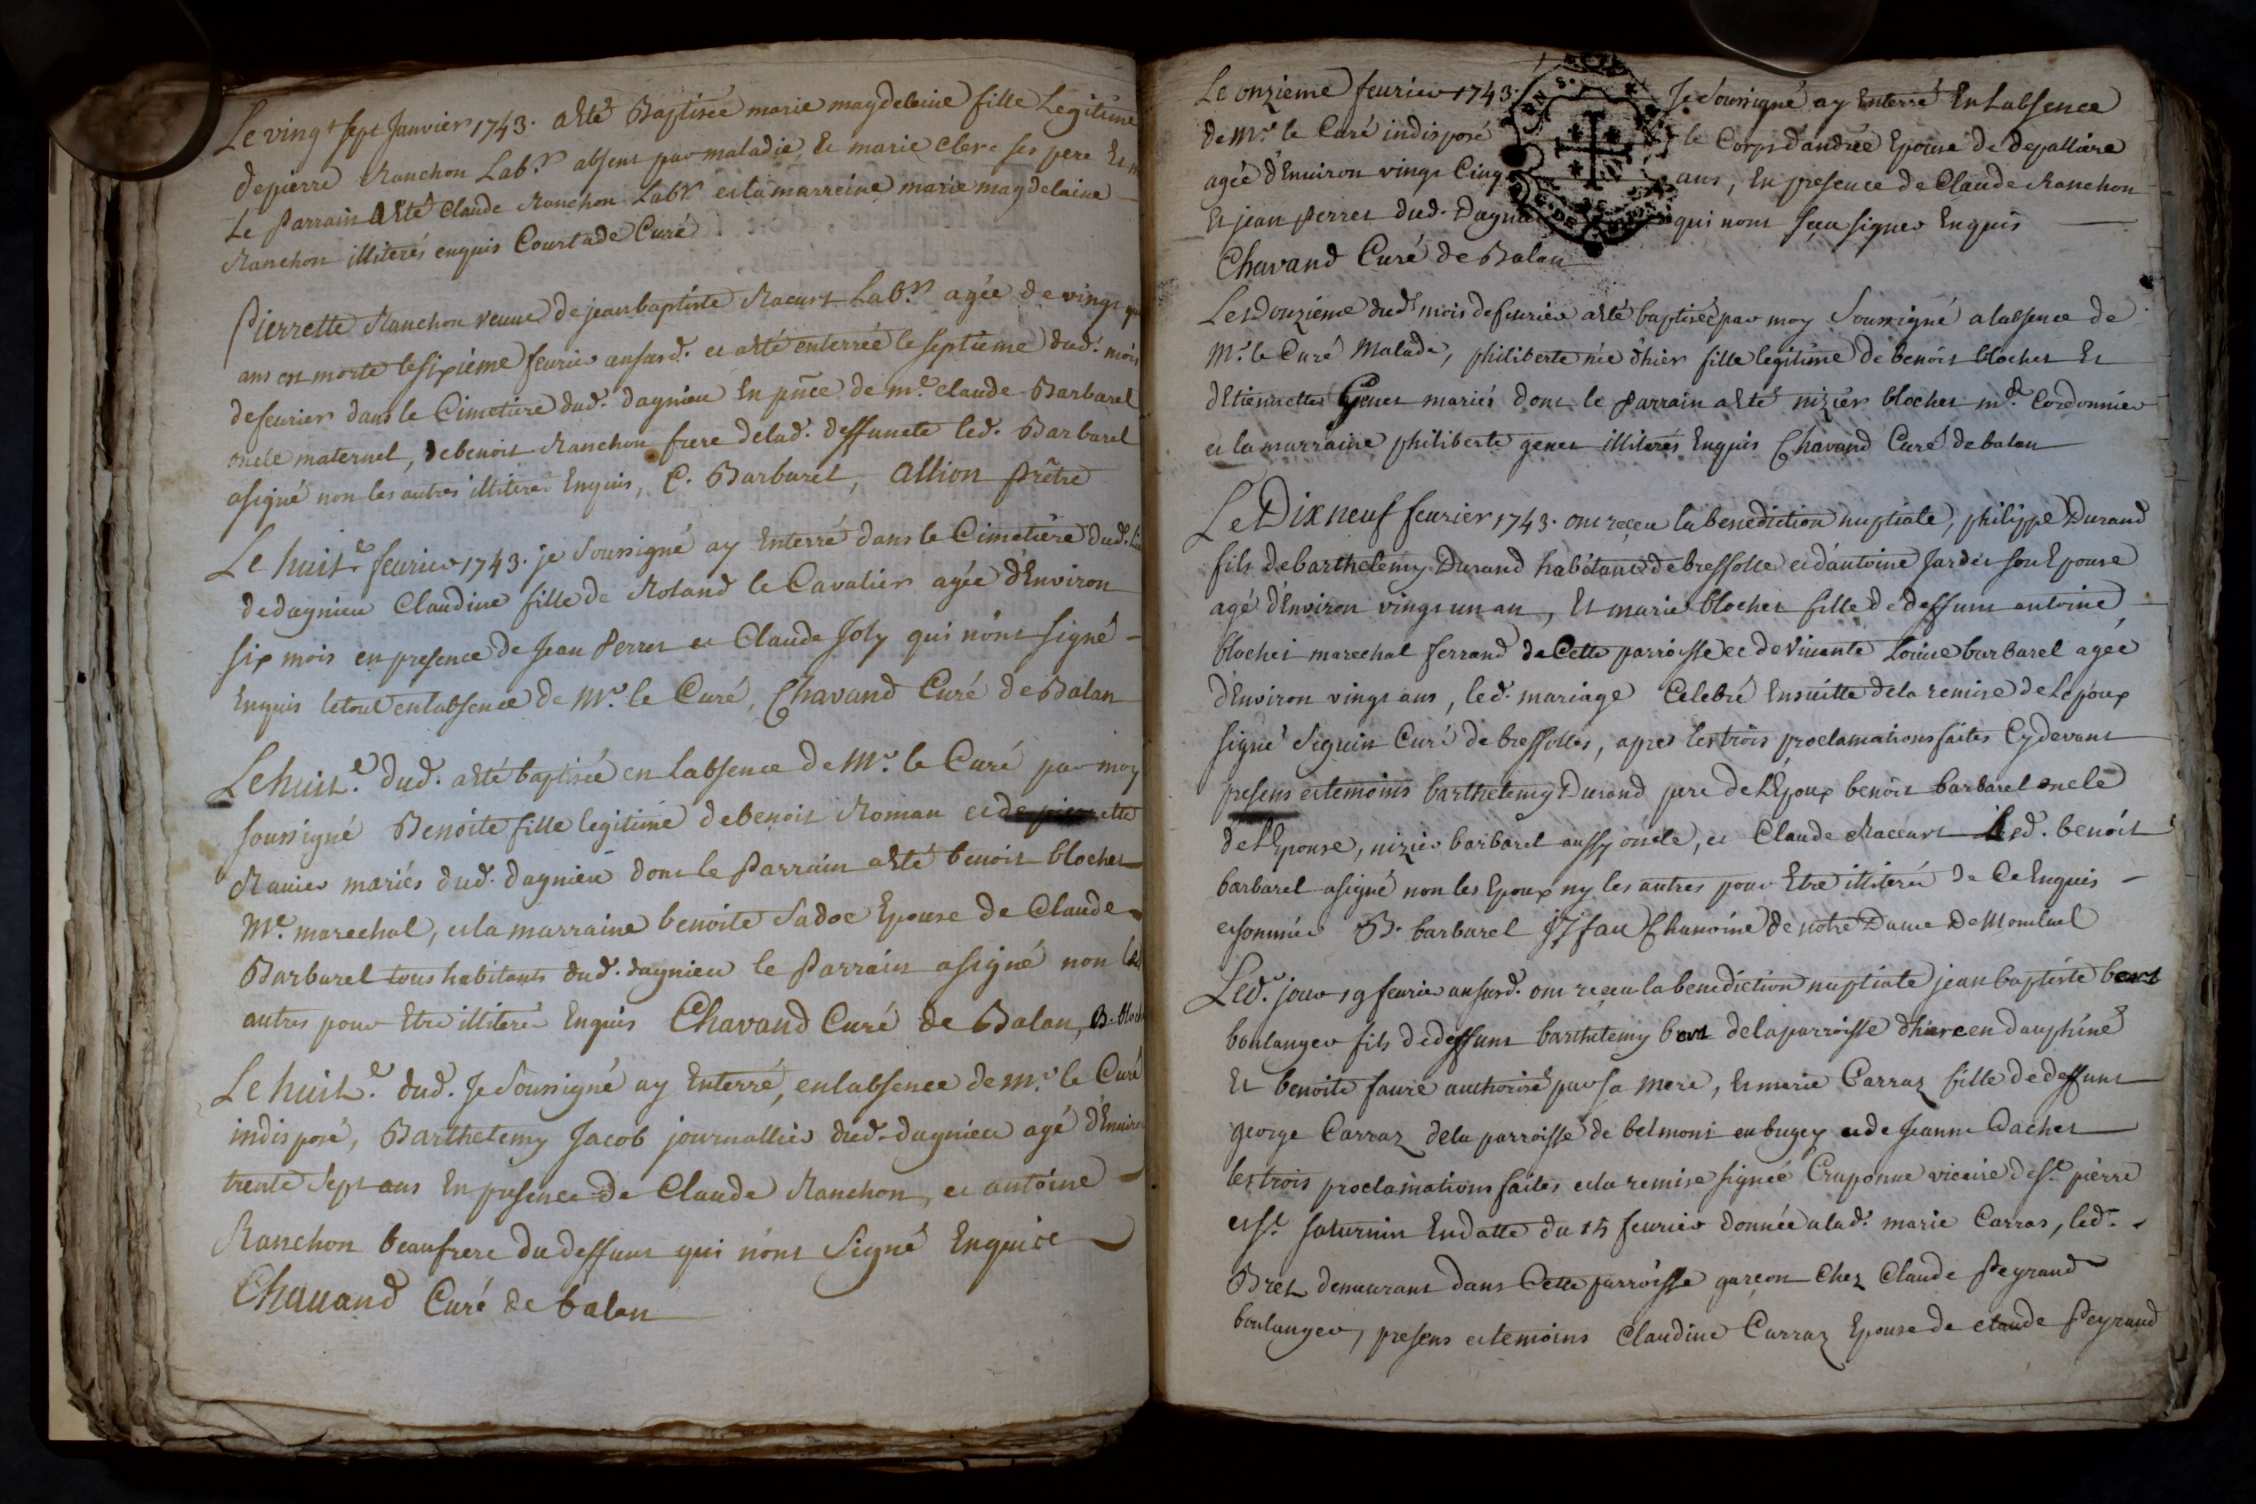 Le vingt sept Janvier 1743. a été Baptisée marie magdeleine fille Legitime
de pierre Ranchon Lab.r absent par maladie, et marie clere ses pere Et m
Le Parrain a Eté Claude Ranchon Lab.r et la marreine marie magdelaine
Ranchon illiterés enquis Courtade Curé
Pierrette Ranchon veuve de jean baptiste Racurt Lab.r agée de vingt
ans est morte le sixieme feurier ansusd. et a été enterrée le septieme dud. mois
de feurier dans le Cimetiere dud. dagnieu En pnce de m.e claude Barbarel
oncle maternel, de benoit Ranchon frere de lad. deffuncte led. Barbarel
a signé non les autres illiterés Enquis, C. Barbarel, Allion Prêtre
Le huit.e feurier 1743. je Soussigné ay Enterré dans le Cimetiere dud.
de dagnieu Claudine fille de Roland le Cavalier agée d'Environ
six mois en presence de Jean Perret et Claude Joly qui n'ont signé
Enquis le tout en labsence de Mr. le Curé, Chavand Curé de Balan
Le huit.e dud. a été baptisée en Labsence de Mr. le Curé par moy
soussigné Benoite fille legitime de benoit Roman et de pierrette
Ravier mariés dud. dagnieu dont le Parrain a été benoit blochet
M.e marechal, et la marraine benoite Sadoc Epouse de Claude
Barbarel tous habitants dud. dagnieu le Parrain a signé non les
autres pour Etre illiterés Enquis Chavand Curé de Balan, B. bloch
Le huit.e dud. Je Soussigné ay Enterré, en labsence de Mr. le Curé
indisposé, Barthelemy Jacob journallier dud. dagnieu agé d'Environ
trente sept ans En presence de Claude Ranchon, et antoine
Ranchon beaufrere du deffunt qui n'ont Signé Enquice
Chauand Curé de balan
Le onzieme feurier 1743. Je Soussigné ay Enterré En Labsence
de Mr. le Curé indisposé le Corps d'andrée Epouse de depallière
agée d'Environ vingt Cinq ans, En presence de Claude Ranchon
Et jean Perret dud. Dagnieu qui nont sçeu signer Enquis
Chavand Curé de Balan
Le douzieme dud. mois de feurier a été baptisée par moy Soussigné a labsence de
Mr. le Curé Malade, philiberte née d'hier fille legitime de benoit blochet Et
d'Etiennette Genet mariés dont le Parrain a Eté nizier blochet m.d Cordonnier
et la marraine philiberte genet illiterés Enquis Chavand Curé de balan
Le Dix neuf feurier 1743. ont reçeu la benediction nuptiale, philippe Durand
fils de barthelemy Durand habitant de bressolle et d'antoine Jardet son Epouse
agé d'Environ vingt un an, Et marie blochet fille de deffunt antoine
blochet marechal ferrand de Cette parroisse et de Vivante Louise barbarel agée
d'Environ vingt ans, led. mariage Celebré Ensuitte de la remise de Lepoux
signé Seguin Curé de bressolles, apres les trois proclamations faites Cy devant
presens et temoins barthelemy Durand pere de l'Epoux benoit barbarel oncle
de l'Epouse, nizier barbarel aussy oncle, et Claude Raccurt Led. benoit
barbarel a signé non les Epoux ny les autres pour Etre illiterés de Ce Enquis
et sommés B. barbarel Chanoine de notre Dame De Montluel
Led. jour 19 feurier ansusd. ont reçeu la benediction nuptiale jean baptiste bret
boulanger fils de deffunt barthelemy bret de la parroisse d'hiere en dauphiné
Et benoite faure authorisé par sa mere, Et marie Carraz fille de deffunt
george Carraz de la parroisse de belmont en bugey et de Jeanne Cachet
les trois proclamations faites et la remise signée Craponne vicaire de S.t pierre
et S.t saturnin En datte du 15 feurier donnée a lad. marie Carras, led.
Bret demeurant dans Cette parroisse garçon Chez Claude Peyrand
boulanger, presens et temoins Claudine Carraz Epouse de claude Peyrand